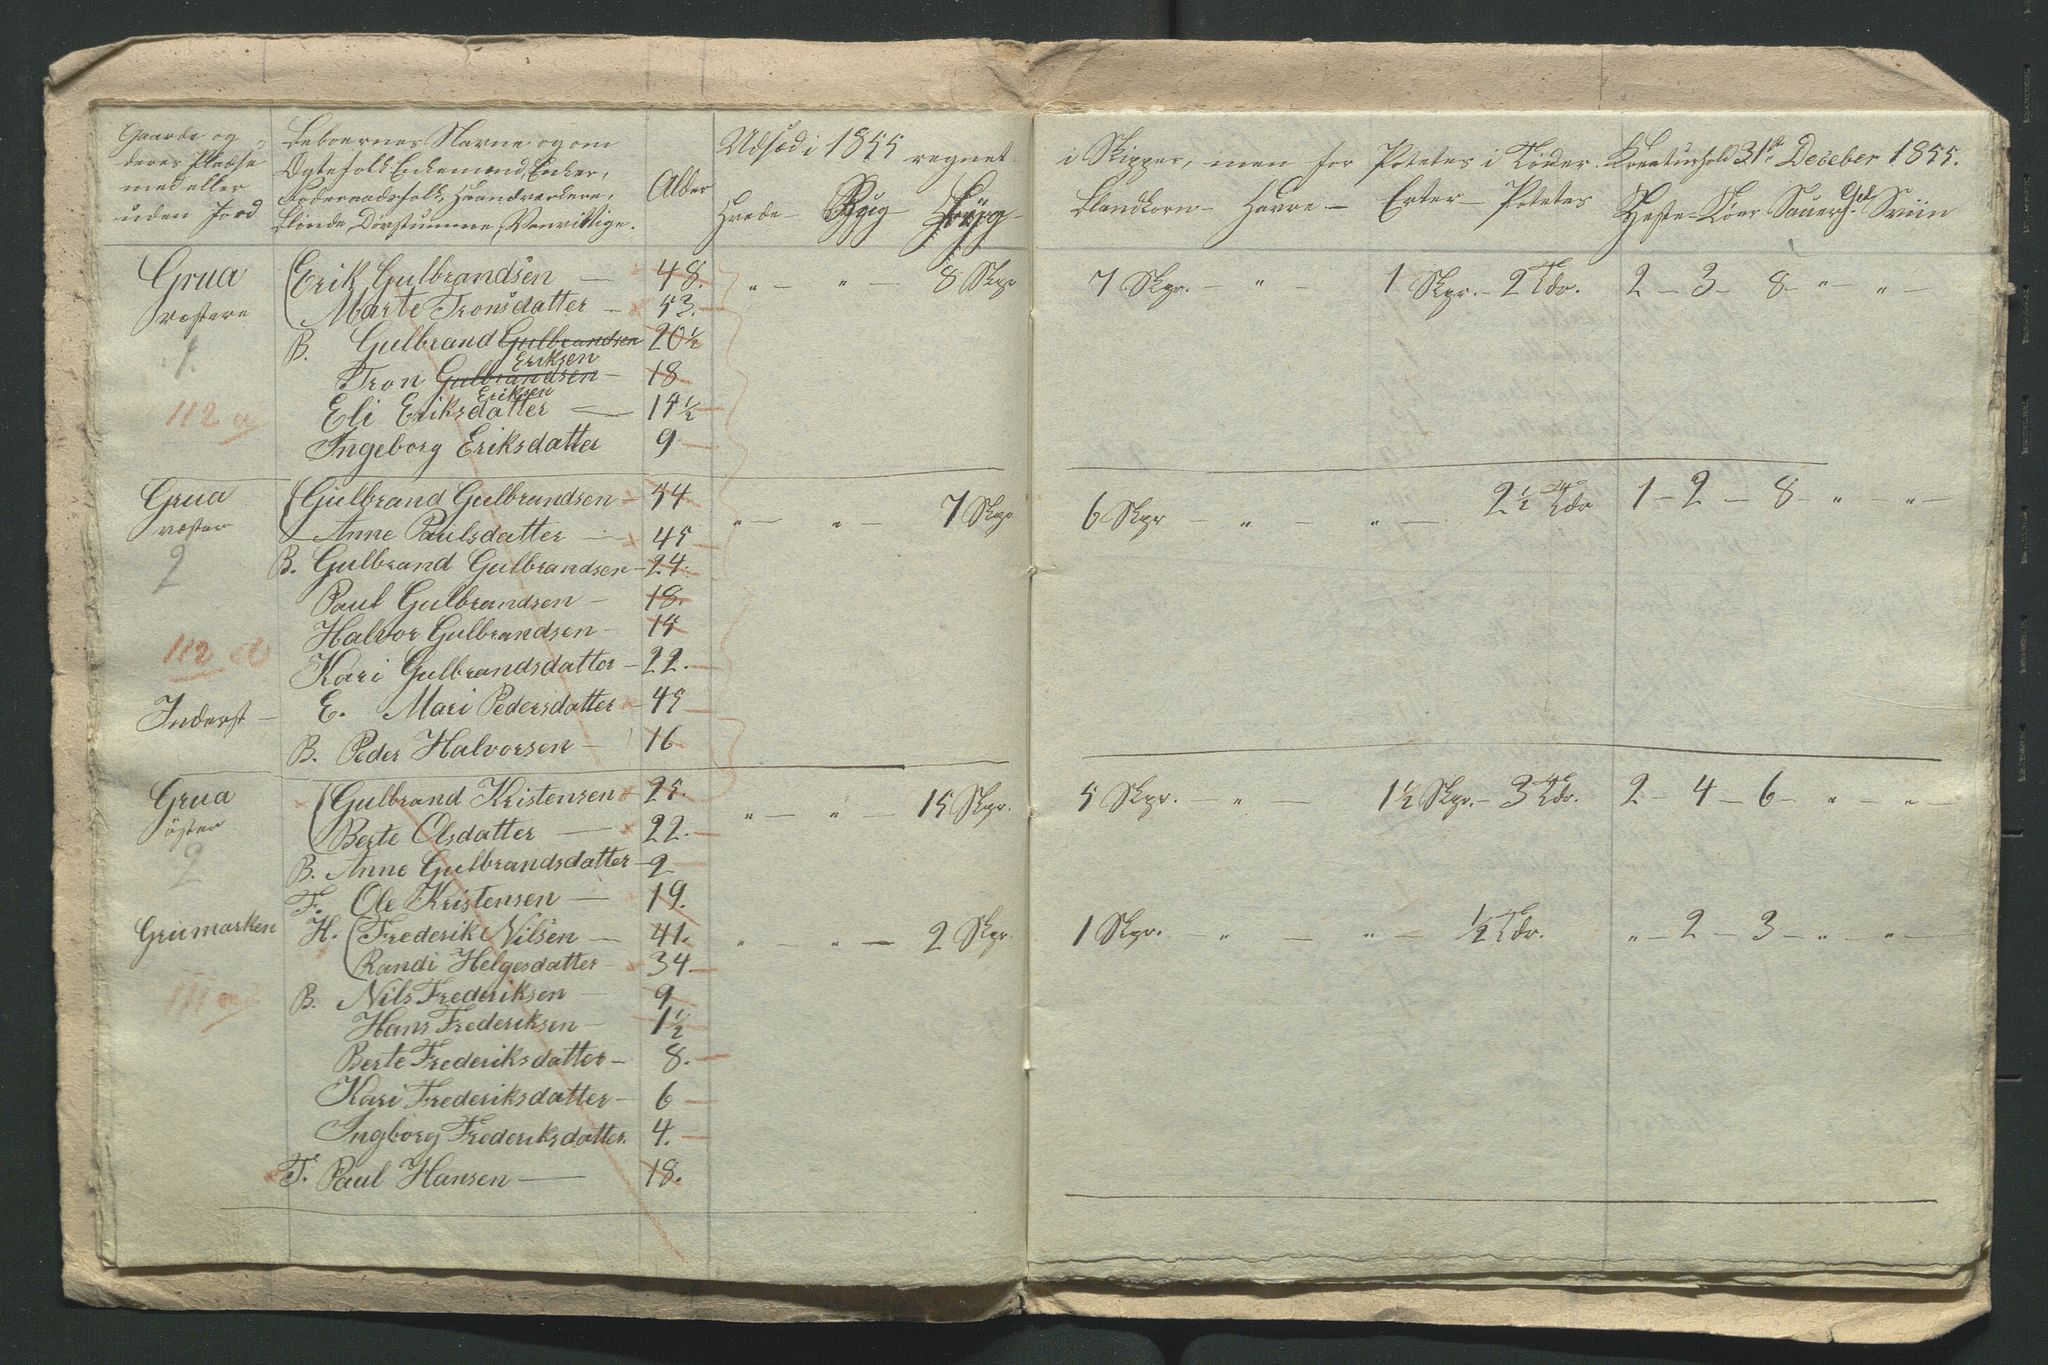 Gaarde og
deres Pladse
med eller
uden Jord
Beboernes Navne og om
Ægtefolk, Enkemænd, Enker,
Foderaadsfolk, Haandværkere,
blinde, Døvstumme, Vanvittige.
Alder
Udsæd i 1855 regnet
i Skipper, men for Potetes i Tønder. Kreaturhold 31te Deceber 1855.
Hvede - Rug - Bÿg -
Blandkorn - Havre - Erter - Potetes
Heste - Köer Sauer Ged Sviin
Grua Erik Gulbrandsen — 48. " — " — 8 Skpr 7 Skpr. — " — 1 Skpr. — 2 Tdr. 2 — 3 — 8 — " — " —
væstere Marte Tronsdatter — 53.
1. B. Gulbrand Gulbrandsen 20½
Eriksen
Tron Gulbrandsen — 18
Eriksen
112 a Eli Eriksdatter — 14½
Ingeborg Eriksdatter 9
Grua Gulbrand Gulbrandsen — 54 " — " — 7 Skpr 6 Skpr — " — " — 2½ Tdr 1 — 2 — 8 — " — " —
væster Anne Paulsdatter — 45
2 B. Gulbrand Gulbrandsen — 24.
Paul Gulbrandsen — 18.
Halvor Gulbrandsen — 15
112 Kari Gulbrandsdatter — 22.
Inderst — E. Mari Pedersdatter — 45
B. Peder Halvorsen — 16
Grua Gulbrand Kristensen — 25. " — " — 15 Skpr. 5 Skpr. — " — 1½ Skpr. — 3 Tdr. 2 — 4 — 6 — " — " —
öster Berte Olsdatter — 22.
2 B. Anne Gulbrandsdatter — 2
F. Ole Kristensen — 19.
Gruimarken H. Frederik Nilsen — 41. " " — 2 Skpr. 1 Skpr. — " — " — ½ Tdr. " — 2 — 3 — " — " —
Randi Helgesdatter — 34
111 B. Nils Frederiksen — 9
Hans Frederiksen — 1½
Berte Frederiksdatter — 8.
Kari Frederiksdatter — 6
Ingborg Frederiksdatter 4.
T. Paul Hansen — 18.